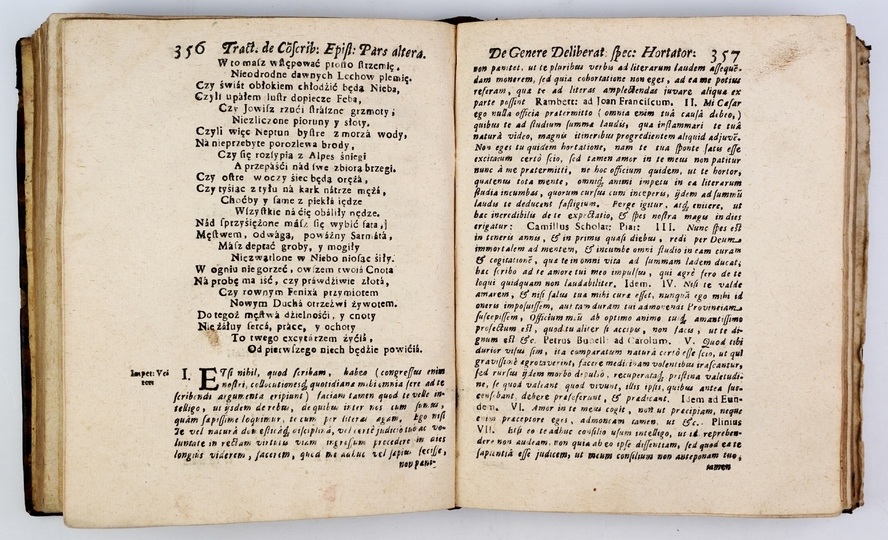 356 Tract. de Cõscrib: Epist: Pars altera.
W to masz wstępować prosto strzemię,
Nieodrodne dawnych Lechow plemię.
Czy świát obłokiem chłodzić będą Nieba,
Czyli upałem lustr dopiecze Feba,
Czy Jowisz rzući strászne grzmoty;
Niezliczone pioruny y słoty.
Czyli więc Neptun bystre z morzá wody,
Ná nieprzebyte porozlewa brody,
Czy się rozsypia z Alpes śniegi
A przepáśći nád swe zbiorą brzegi.
Czy ostre w oczy śiec będą orężá,
Czy tyśiąc z tyłu ná kark nátrze mężá,
Choćby y same z piekłá jędze
Wszystkie ná ćię obáliły nędze.
Nád sprzyśiężone masz się wybić fata,
Męstwem, odwagą, poważny Sarmátá,
Masz deptáć groby, y mogiły
Niezwątlone w Niebo niosąc śiły.
W ogniu nie gorzeć, owszem twoiá Cnota
Ná probę ma iść, czy prawdźiwie złotá,
Czy rownym Fenixá przymiotem
Nowym Duchá otrzeźwi żywotem.
Do tegoż męstwá dźielnośći, y cnoty
Nie żáłuy sercá, práce, y ochoty
To twego excytárzem żyćiá,
Od pierwszego niech będźie powićiá.
I. ETsi nihil, quod scribam, habeo (congressus enim
nostri, collocutionesq; quotidiana mihi omnia fere ad te
scribendi argumenta eripiunt) faciam tamen quod te velle in-
telligo, ut ijsdem de rebus, de quibus inter nos cum sumus,
quàm sæpissime loqnimur, te cum per literas agam. Ego nisi
voluntate in rectam virtutis viam ingressum procedere in dies
longiùs viderem, facerem, quod me adhuc vel sæpius fecisse,
non pæni-
De Genere Deliberat: spec: Hortator: 357
non pænitet, ut te pluribus verbis ad literarum laudem assequẽ-
dam monerem, sed quia cohortatione non eges, ad ea me potius
referam, qua te ad literas amplectendas juvare aliqua ex
parte possint Rambertt: ad Joan Franciscum. II. Mi Cæsar
ego nulla officia prætermitto (omnia enim tuâ causâ debeo,)
quibus te ad studium summa laudis, qua inflammari te tuâ
naturâ video, magnis itineribus progredientem aliquid adjuvẽ.
Non eges tu quidem hortatione, nam te tua sponte satis esse
excitatum certò scio, sed tamen amor in te meus non patitur
nunc à me prætermitti, ne hoc officium quidem, ut te hortor,
quatenus tota mente, omniq; animi impetu in ea literarum
studia incumbas, quorum cursus cum inceperis, ijdem ad summũ
laudis te deducent fastigium. Perge igitur, atq; enitere, ut
hac incredibilis de te expectatio, & spes nostra magis in dies
erigatur: Camillus Scholar: Piar: III. Nunc spes est
in teneris annis, & in primis quasi diebus, redi per Deum
immortalem ad mentem, & incumbe omni studio in eam curam
& cogitationẽ, qua te in omni vita ad summam ladem ducat,
hac scribo ad te amore tui meo impulsus, qui ægrè fero de te
loqui quidquam non laudabiliter, Idem. IV. Nisi te valde
amarem, & nisi salus tua mihi cura esset, nunquã ego mihi id
oneris imposuissem, aut tam duram tui admonendi Provinciam
suscepissem, Officium m.ũ ab optimo animo tuiq; amantissimo
profectum est, quod tu aliter si accipis, non facis, ut te di-
gnum est &c. Petrus Bunell: ad Carolum. V. Quod tibi
durior visus sim, ita comparatum naturâ certò esse scio, ut qui
gravissimè ægrotaverint, facere medicinam volentibus irascantur,
sed rursus ijdem morbo depulso, recuperataq; pristina valetudi-
ne, se quod valeant quod vivunt, illis ipsis, quibus antea suc-
censebant, debere præseferunt, & prædicant. Idem ad Eun-
dem. VI. Amor in te meus cogit, non ut præcipiam, neque
enim præceptore eges, admoneam tamen, ut &c. Plinius
VII. Etsi eo te adhuc consilio usum intelligo, ut id reprehen-
dere non audeam, non quia ab eo ipse dissentiam, sed quod ea te
sapientiâ esse judicem, ut meum consilium non anteponam tuo,
tamen